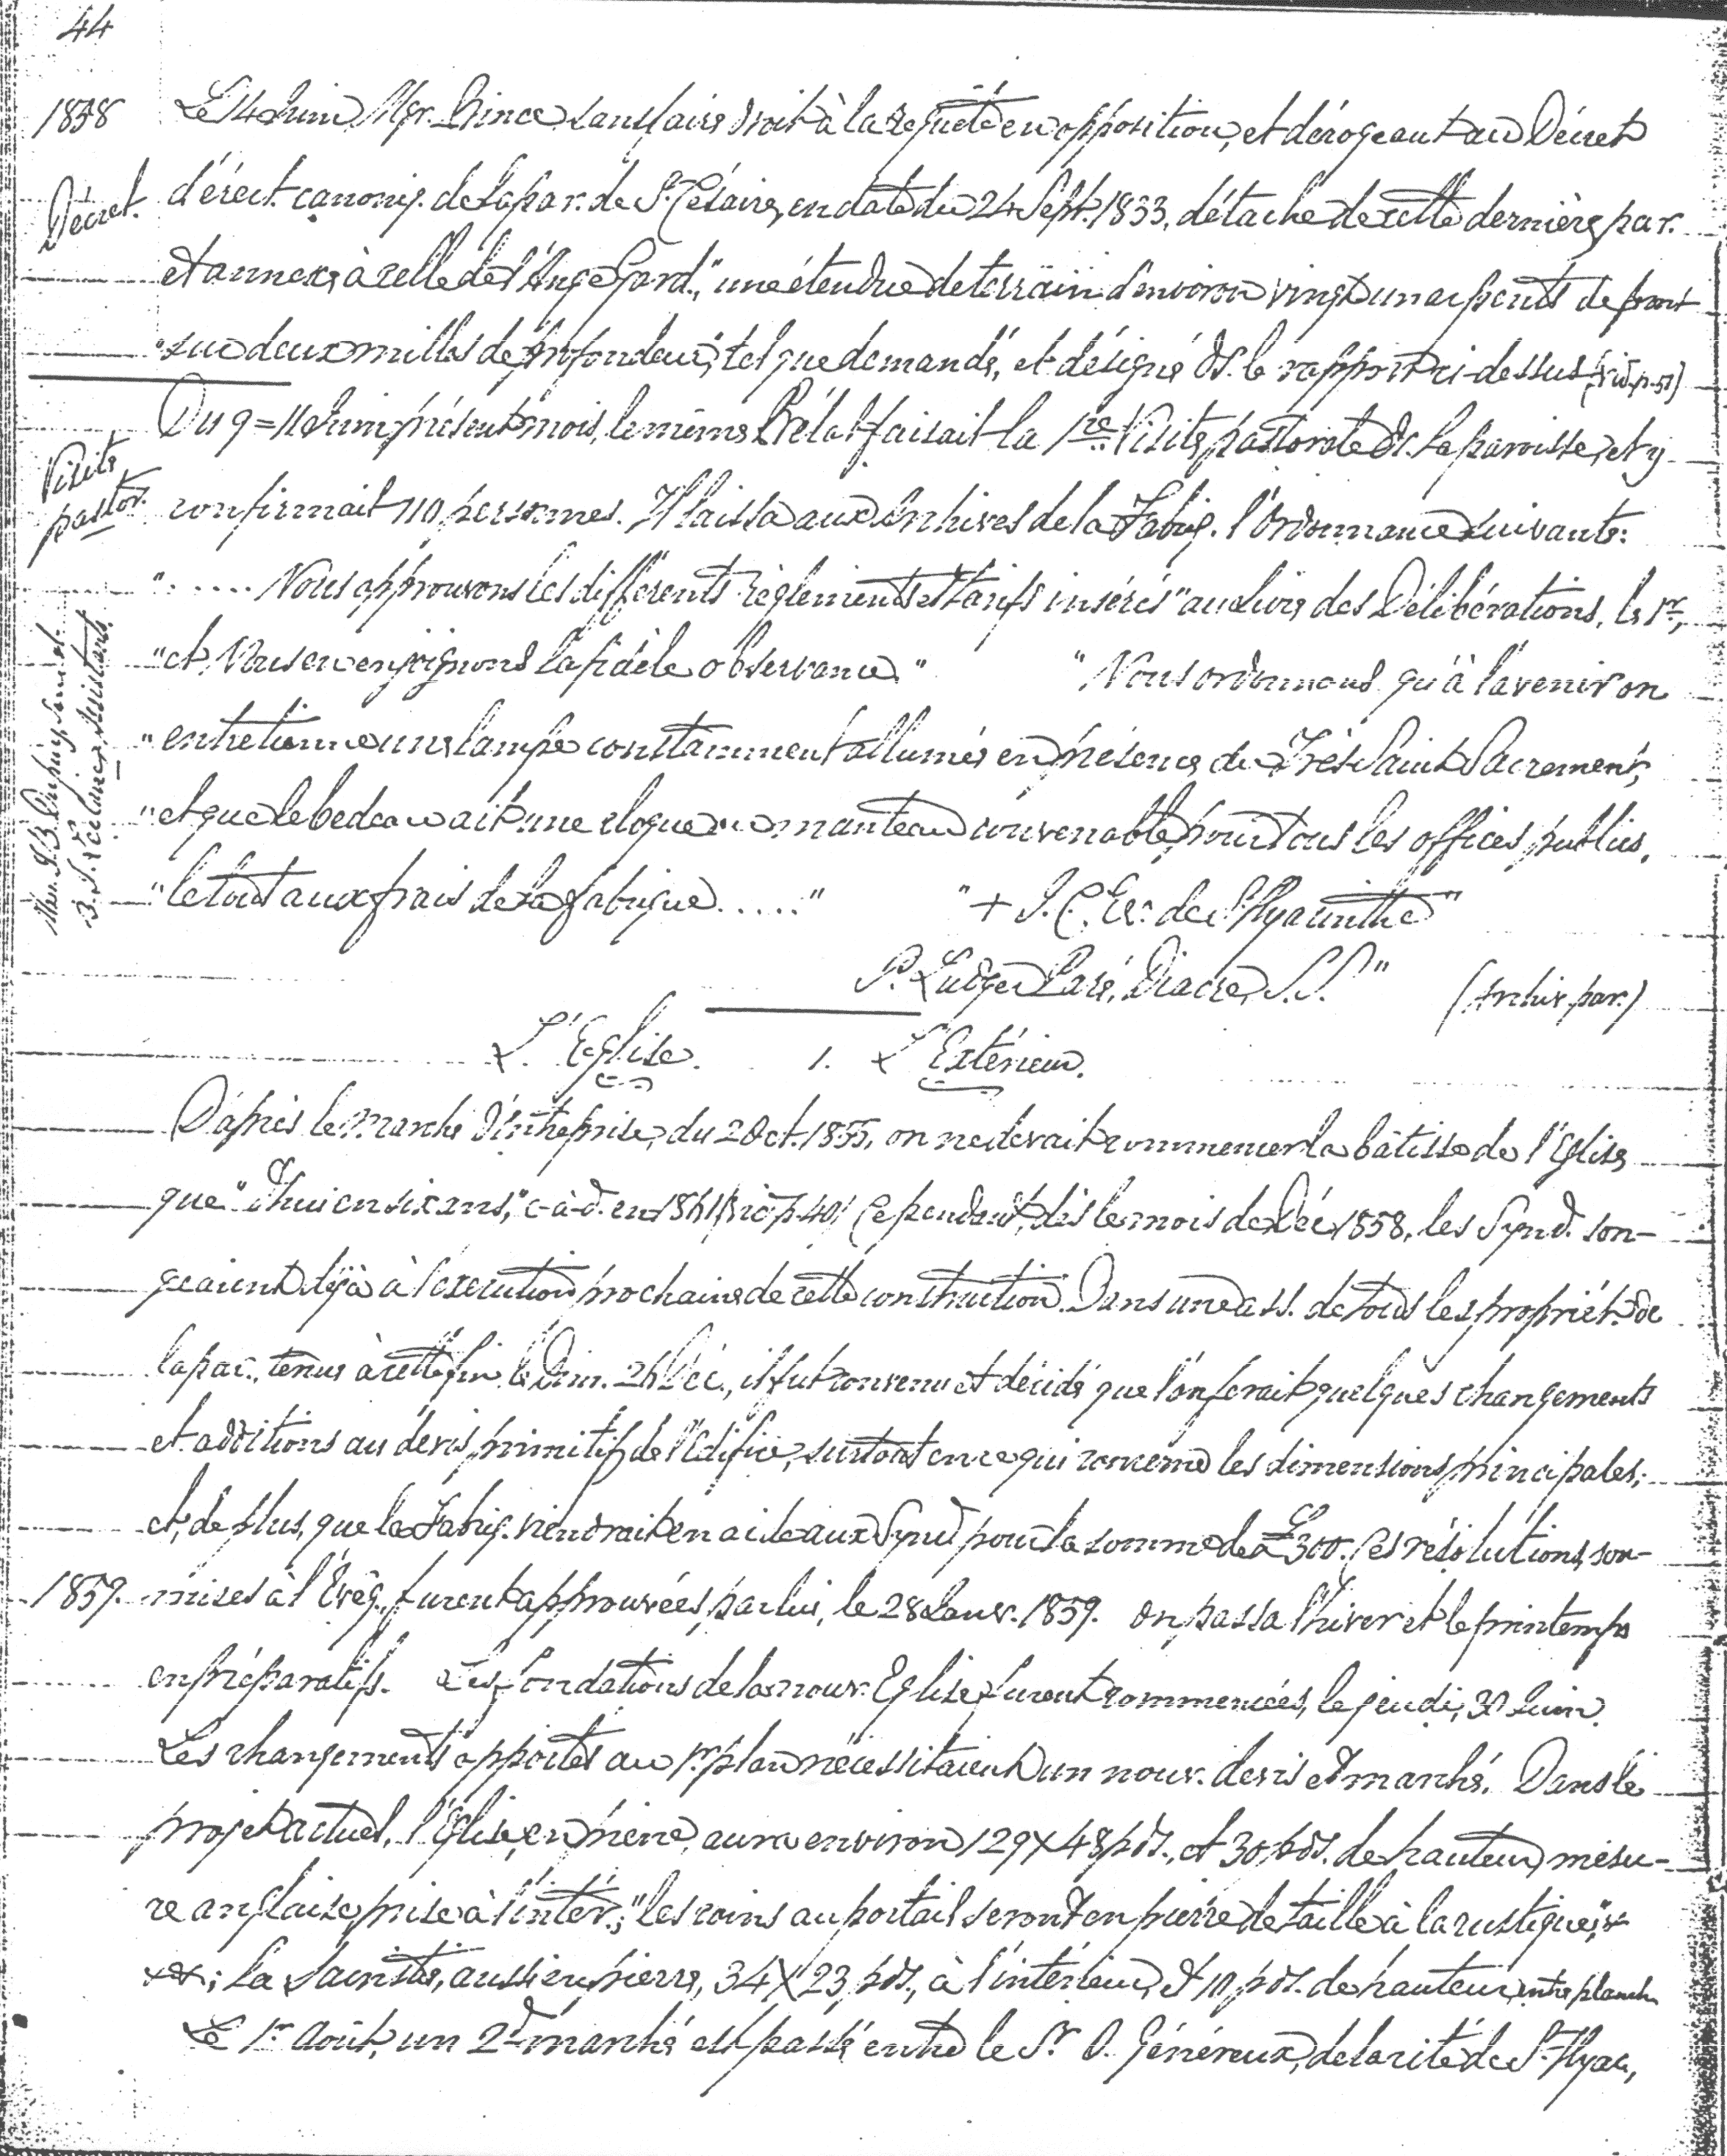 44
1858
Le 14 Juin, Mgr. Prince, sans faire droit à la requête en opposition, et dérogeant au Décret
Décret.
d'érect. canoniq. de la par. de St. Césaire, en date du 24 Sept. 1833, détache de cette dernière par.
et annexe à celle de l'Ange Gard., "une étendue de terrain d'environ vingt un arpents de front
"sur deux milles de profondeur," tel que demandé, et désigné ds. le rapport ci-dessus
Du 9 = 11 Juin, présent mois, le même Prélat faisait la 1re Visite pastorale ds. la paroisse, et y
Visite
pastor.
confirmait 110 personnes. Il laissa aux Archives de la Fabriq. l'Ordonnance suivante:
"..... Nous approuvons les différents règlements et tarifs insérés "au Livre des Délibérations, le 1er,
"et Nous en enjoignons la fidèle observance." "Nous ordonnons qu'à l'avenir on
"entretienne une lampe constamment allumée en présence du Très Saint Sacrement,
"et que le bedeau ait une togue ou manteau convenable pour tous les offices publics,
"le tout aux frais de la fabrique....." "+ J. C. Ev. de St. Hyacinthe"
P. Ludger Paré, Diacre, S.S." (Archiv. par.)
L'Eglise. 1. L'Extérieur.
D'après le marché d'entreprise, du 2 Oct. 1855, on ne devait commencer la bâtisse de l'Eglise
que "d'hui en six ans," c-à-d. en 1861 (vid. p. 40) Cependant, dès le mois de Déc. 1858, les Synd. son-
geaient déjà à l'exécution prochaine de cette construction. Dans une ass. de tous les propriét. de
la par., tenue à cette fin le Dim. 26 Déc., il fut convenu et décidé que l'on ferait quelques changements
et additions au devis primitif de l'Edifice, surtout en ce qui concerne les dimensions principales;
et, de plus, que la Fabriq. viendrait en aide aux Synd. pour la somme de £300. Ces résolutions, sou-
1859.
mises à l'Evêq., furent approuvées par lui, le 28 Janv. 1859. On passa l'hiver et le printemps
en préparatifs. Les fondations de la nouv. Eglise furent commencées, le jeudi, 30 Juin.
Les changements apportés au 1er plan nécessitaient un nouv. devis et marché. Dans le
projet actuel, l'Eglise, en pierre, aura environ 129 x 48 pds., et 30 pds. de hauteur, mesu-
re anglaise prise à l'intér.; "les coins au portail seront en pierre de taille à la rustique,"
la Sacristie, aussi en pierre, 34 x 23 pds., à l'intérieur, et 10 pds. de hauteur, entre planch.
Le 1er Août, un 2d marché est passé entre le Sr. O. Généreux, de la cité de St. Hyac.,